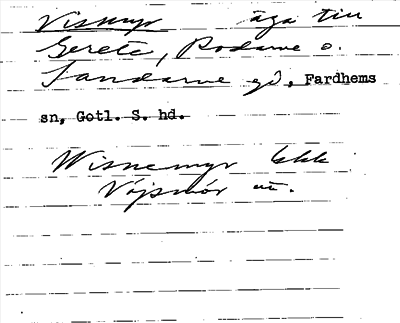 Visnyr äga till
Gerete, Rodarve o.
Sandarve gd, Fardhems
sn, Gotl. S. hd.
Wisnemyr ekk
Väjsmör